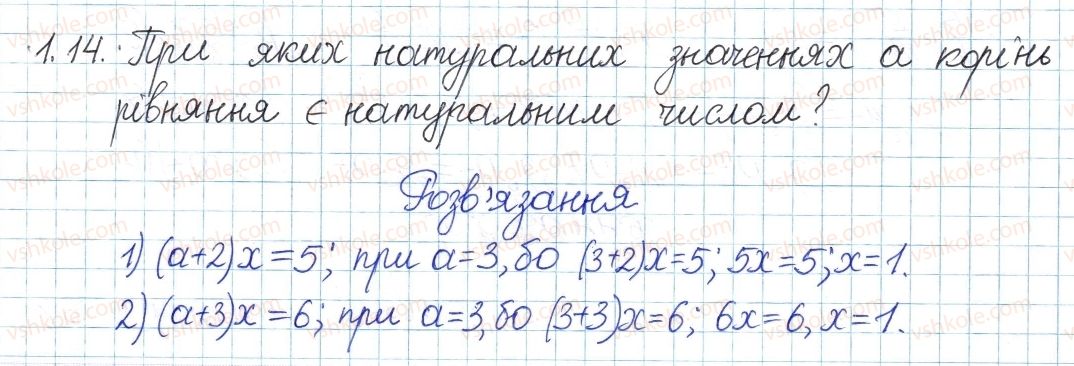 1.14. При яких натуральних значеннях а корінь
рівняння є натуральним числом?
Розв'язання
1) (а+2)х=5; при а=3, бо (3+2)х=5; 5х=5; х=1.
2) (а+3)х=6; при а=3, бо (3+3)х=6; 6х=6, х=1.